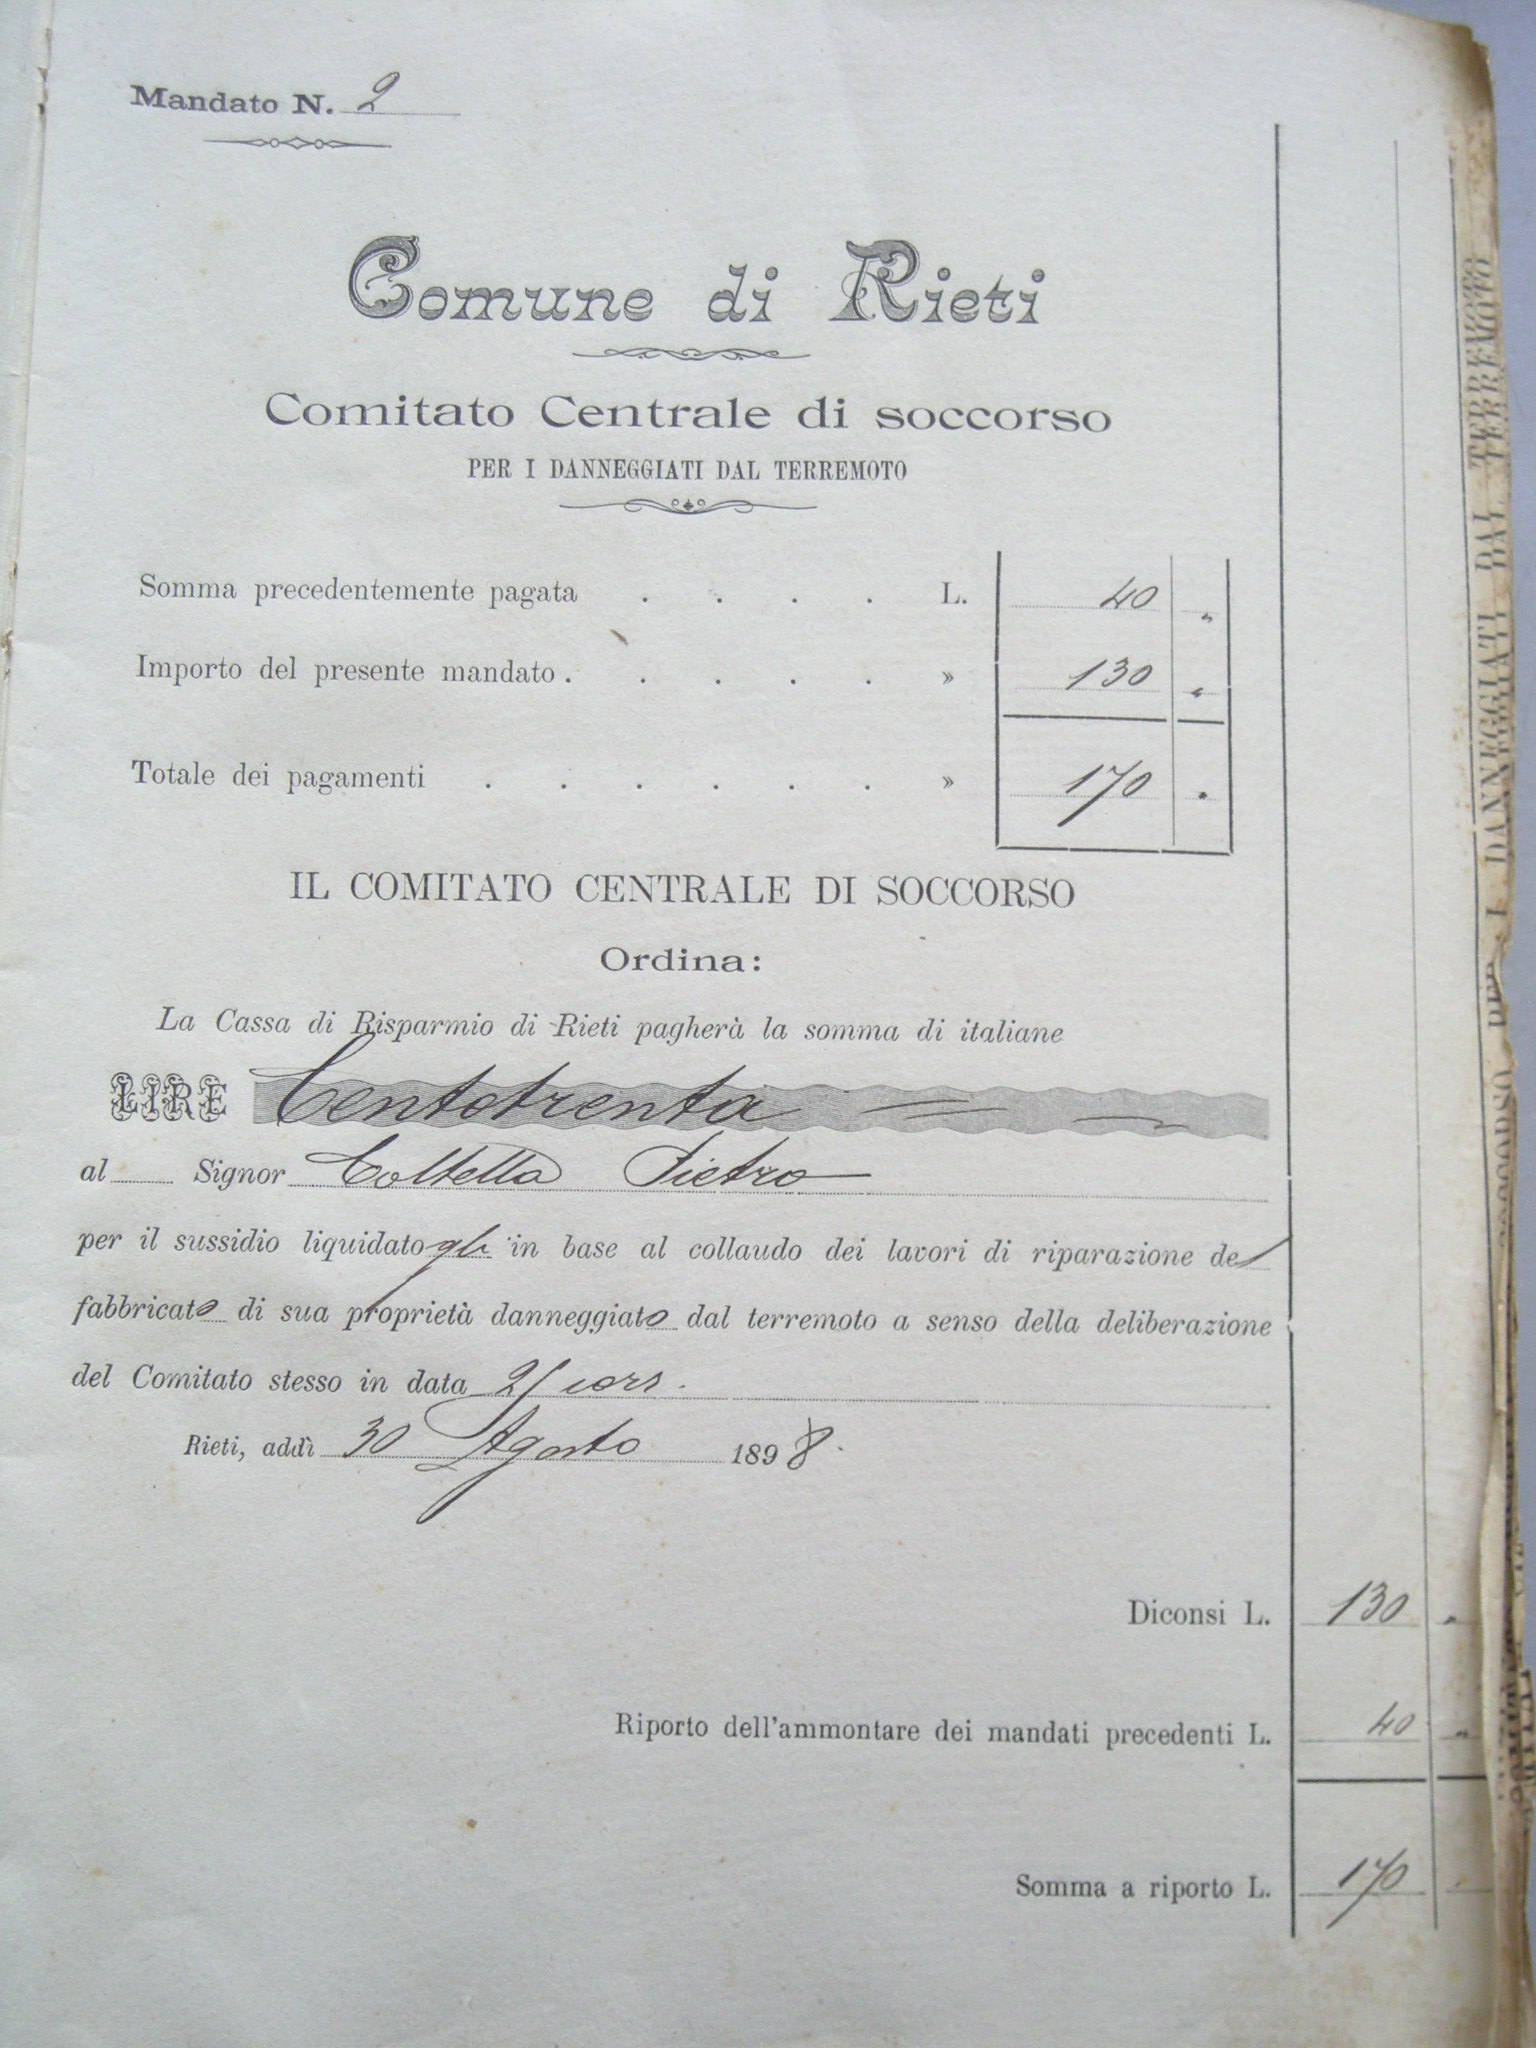 Mandato N. 2
Comune di Rieti
Comitato Centrale di soccorso
PER I DANNEGGIATI DAL TERREMOTO
Somma precedentemente pagata . . . . L. 40 "
Importo del presente mandato . . . . . » 130 "
Totale dei pagamenti . . . . . . » 170 "
IL COMITATO CENTRALE DI SOCCORSO
Ordina:
La Cassa di Risparmio di Rieti pagherà la somma di italiane
LIRE Centotrenta
al Signor Coltella Pietro
per il sussidio liquidato gli in base al collaudo dei lavori di riparazione del
fabbricato di sua proprietà danneggiato dal terremoto a senso della deliberazione
del Comitato stesso in data corr.
Rieti, addì 30 Agosto 1898.
Diconsi L. 130 "
Riporto dell'ammontare dei mandati precedenti L. 40 "
Somma a riporto L. 170
I DANNEGGIATI DAL TERREMOTO